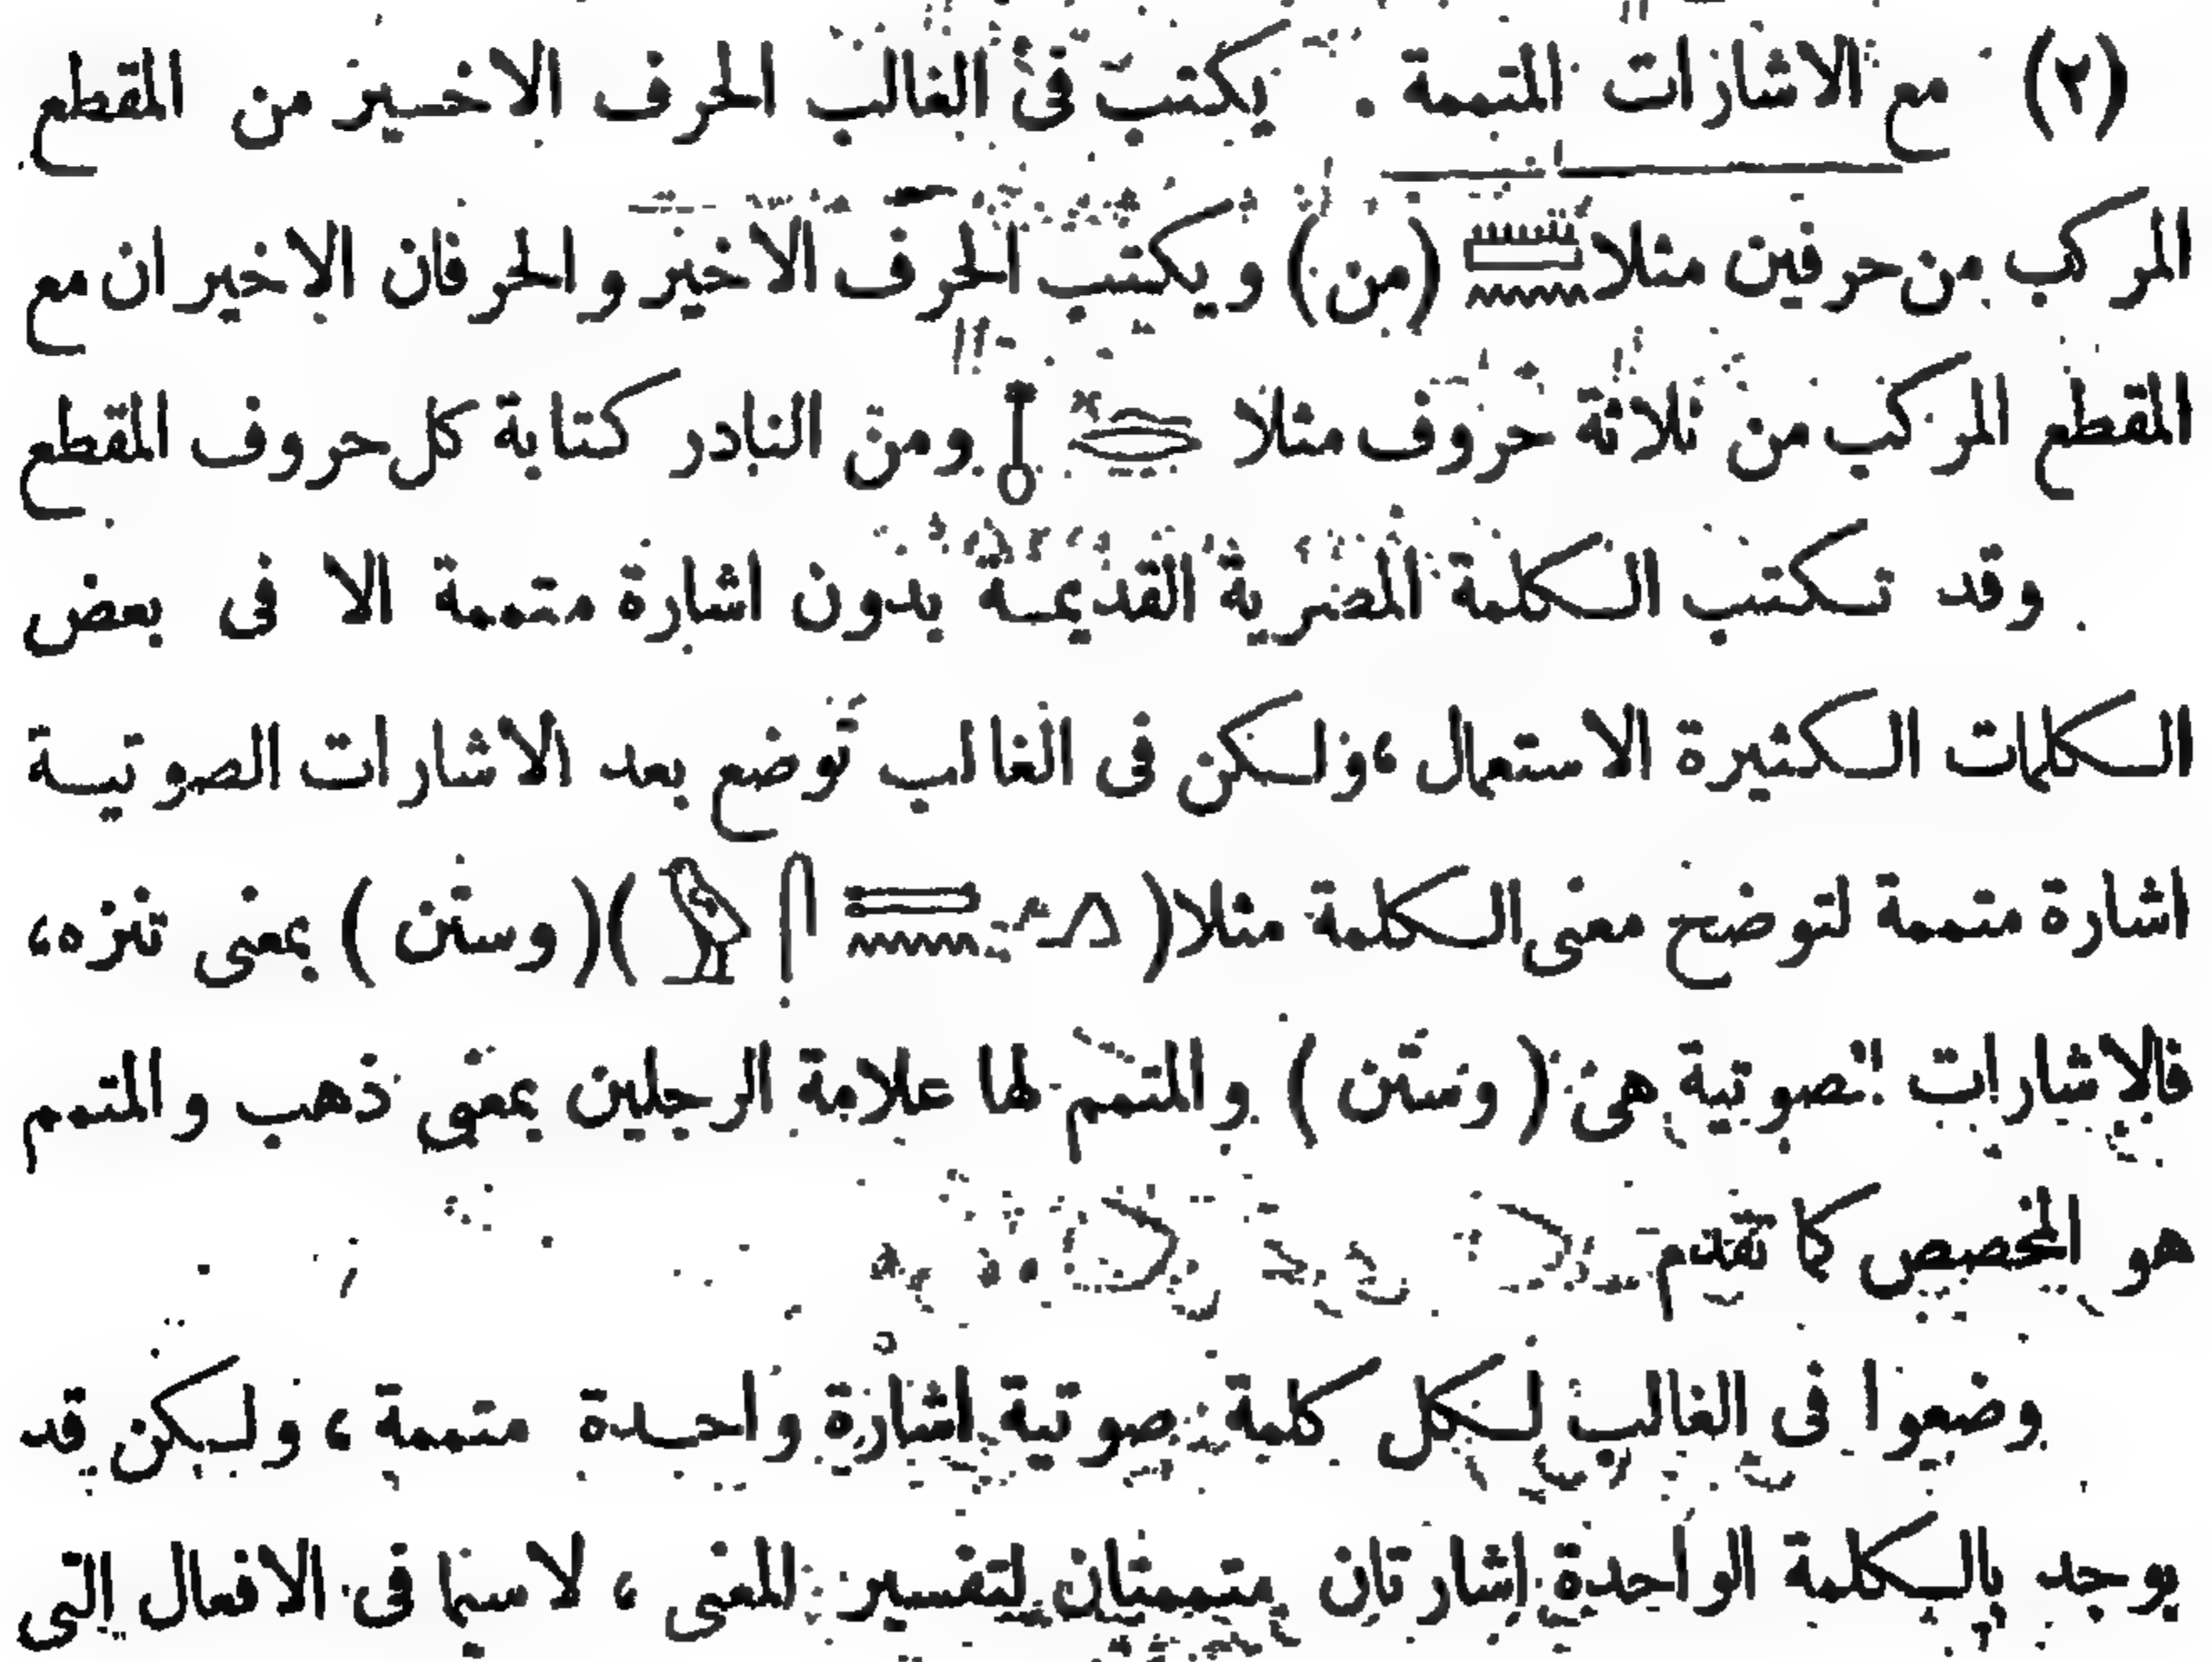 (٢) مع الاشارات المتممة . يكتب فى الغالب الحرف الاخير من المقطع
المركب من حرفين مثلا 𓏠𓈖 (من) ويكتب الحرف الاخير والحرفان الاخيران مع
المقطع المركب من ثلاثة حروف مثلا ومن النادر كتابة كل حروف المقطع
وقد تكتب الكلمة المصرية القديمة بدون اشارة متممة الا فى بعض
الكلمات الكثيرة الاستعمال ، ولكن فى الغالب توضع بعد الاشارات الصوتية
اشارة متممة لتوضح معنى الكلمة مثلا ( )( وستن ) بمعنى تنزه ،
فالاشارات الصوتية هى ( وستن ) والمتمم لها علامة الرجلين بمعنى ذهب والمتمم
هو المخصص كما تقدم
وضعوا فى الغالب لكل كلمة صوتية اشارة واحدة متممة ، ولكن قد
يوجد بالكلمة الواحدة اشارتان متممتان لتفسير المعنى ، لاسيما فى الافعال التى